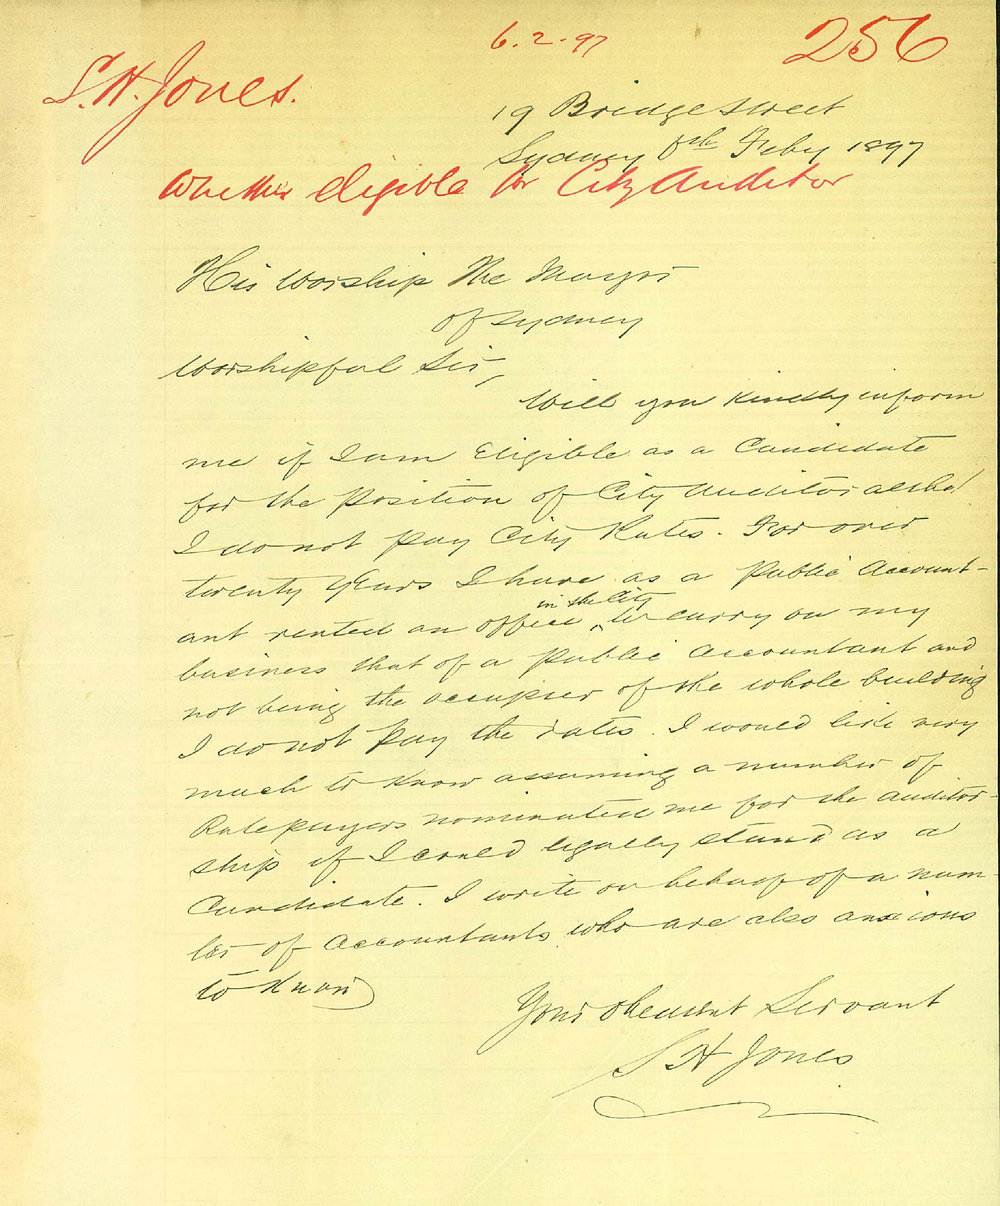 6.2.97
256
S. H. Jones.
19 Bridge Street
Sydney 6th Feby 1897
Whether eligible for City Auditor
His Worship The Mayor
of Sydney
Worshipful Sir,
Will you kindly inform
me if I am Eligible as a Candidate
for the Position of City Auditor altho'
I do not pay City Rates. For over
twenty years I have as a Public Account-
ant rented an office in the City to carry on my
business that of a Public Accountant and
not being the occupier of the whole building
I do not pay the rates. I would like very
much to know assuming a number of
Ratepayers nominated me for the Auditor-
ship if I could legally stand as a
Candidate. I write on behalf of a num-
ber of Accountants who are also anxious
to know
Your Obedient Servant
S H Jones